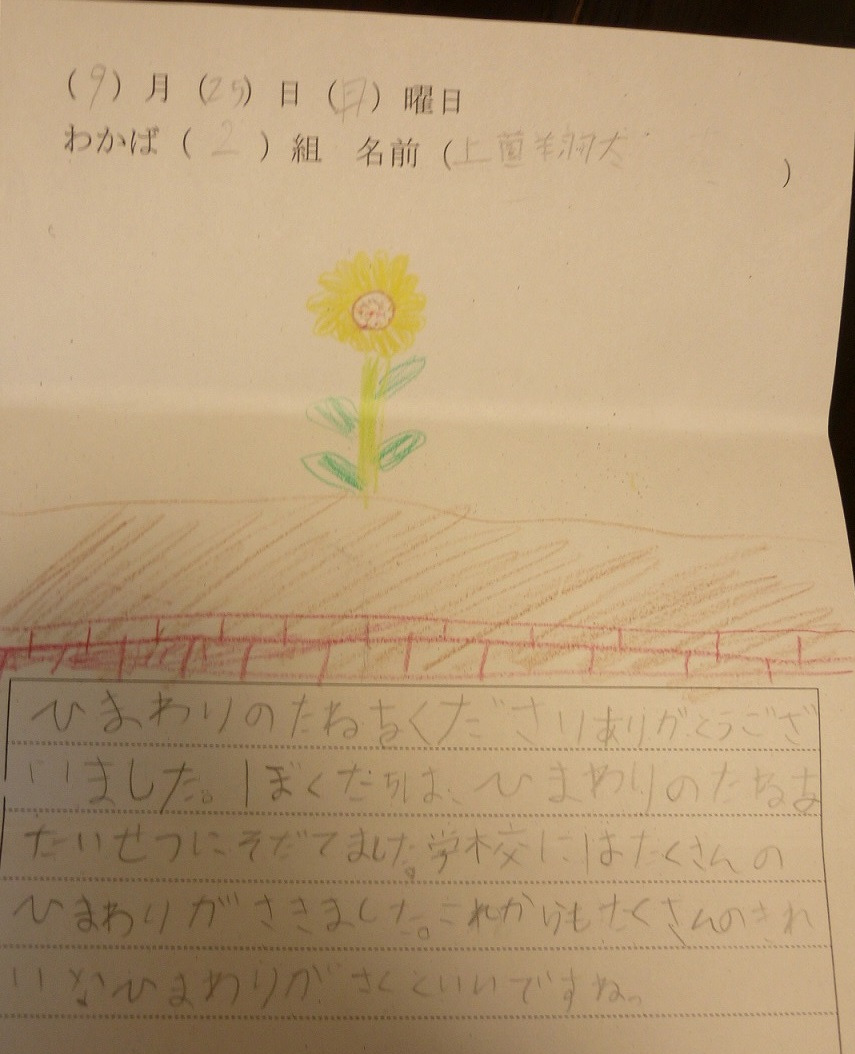 (9)月(25)日(月)曜日
わかば(2)組 名前(上 翔太)
ひまわりのたねをくださりありがとうござ
いました。ぼくたちは、ひまわりのたねを
たいせつにそだてました。学校にはたくさんの
ひまわりがさきました。これからもたくさんのきれ
いなひまわりがさくといいですね。